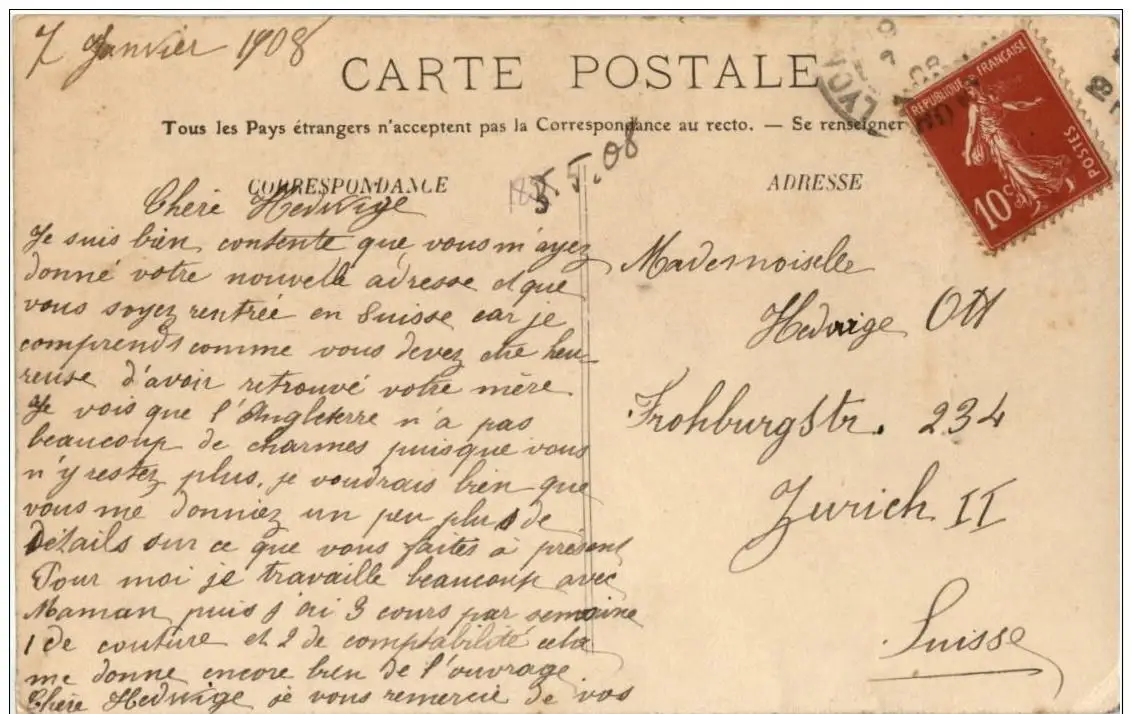 7 Janvier 1908
CARTE POSTALE
Tous les Pays étrangers n'acceptent pas la Correspondance au recto. — Se renseigner
CORRESPONDANCE
5.08
ADRESSE
Chère Hedwige
Je suis bien contente que vous m'ayez
donné votre nouvelle adresse et que
vous soyez rentrée en Suisse car je
comprends comme vous devez être heu-
reuse d'avoir retrouvé votre mère
Je vois que l'Angleterre n'a pas
beaucoup de charmes puisque vous
n'y restez plus, je voudrais bien que
vous me donniez un peu plus de
Détails sur ce que vous faites à présent
Pour moi je travaille beaucoup avec
Maman puis j'ai 3 cours par semaine
1 de couture et 2 de comptabilité cela
me donne encore bien de l'ouvrage
Chère Hedwige je vous remercie de vos
Mademoiselle
Hedwige Ott
Frohburgstr. 234
Zurich II
Suisse
REPUBLIQUE FRANÇAISE
10c
POSTES
LYON
08